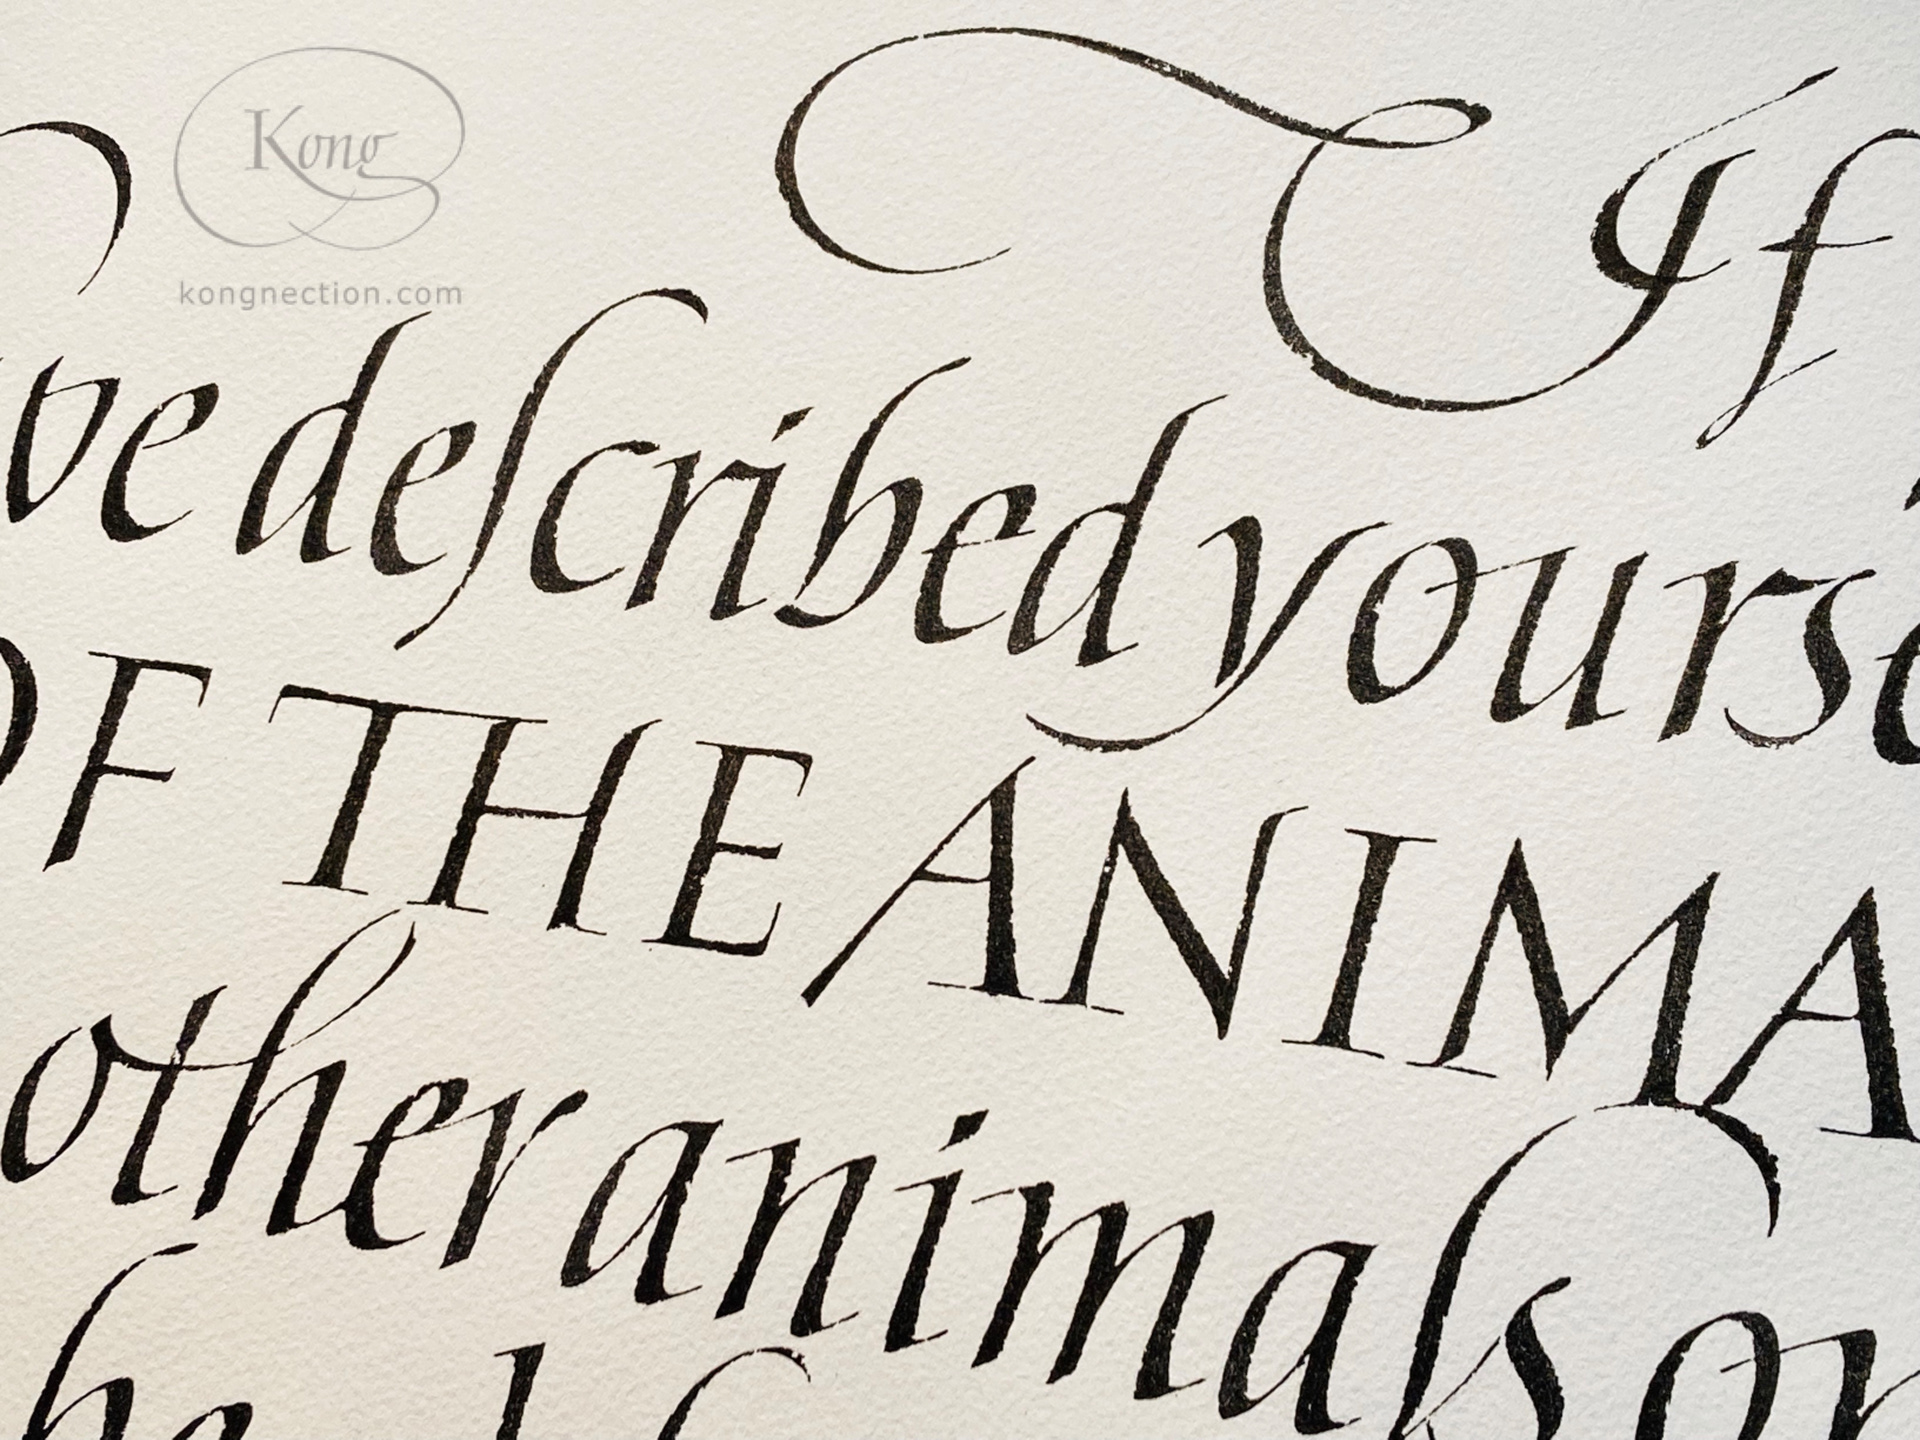 Kong
kongnection.com
If
ve deſcribed yourse
OF THE ANIMA
other animals on
he